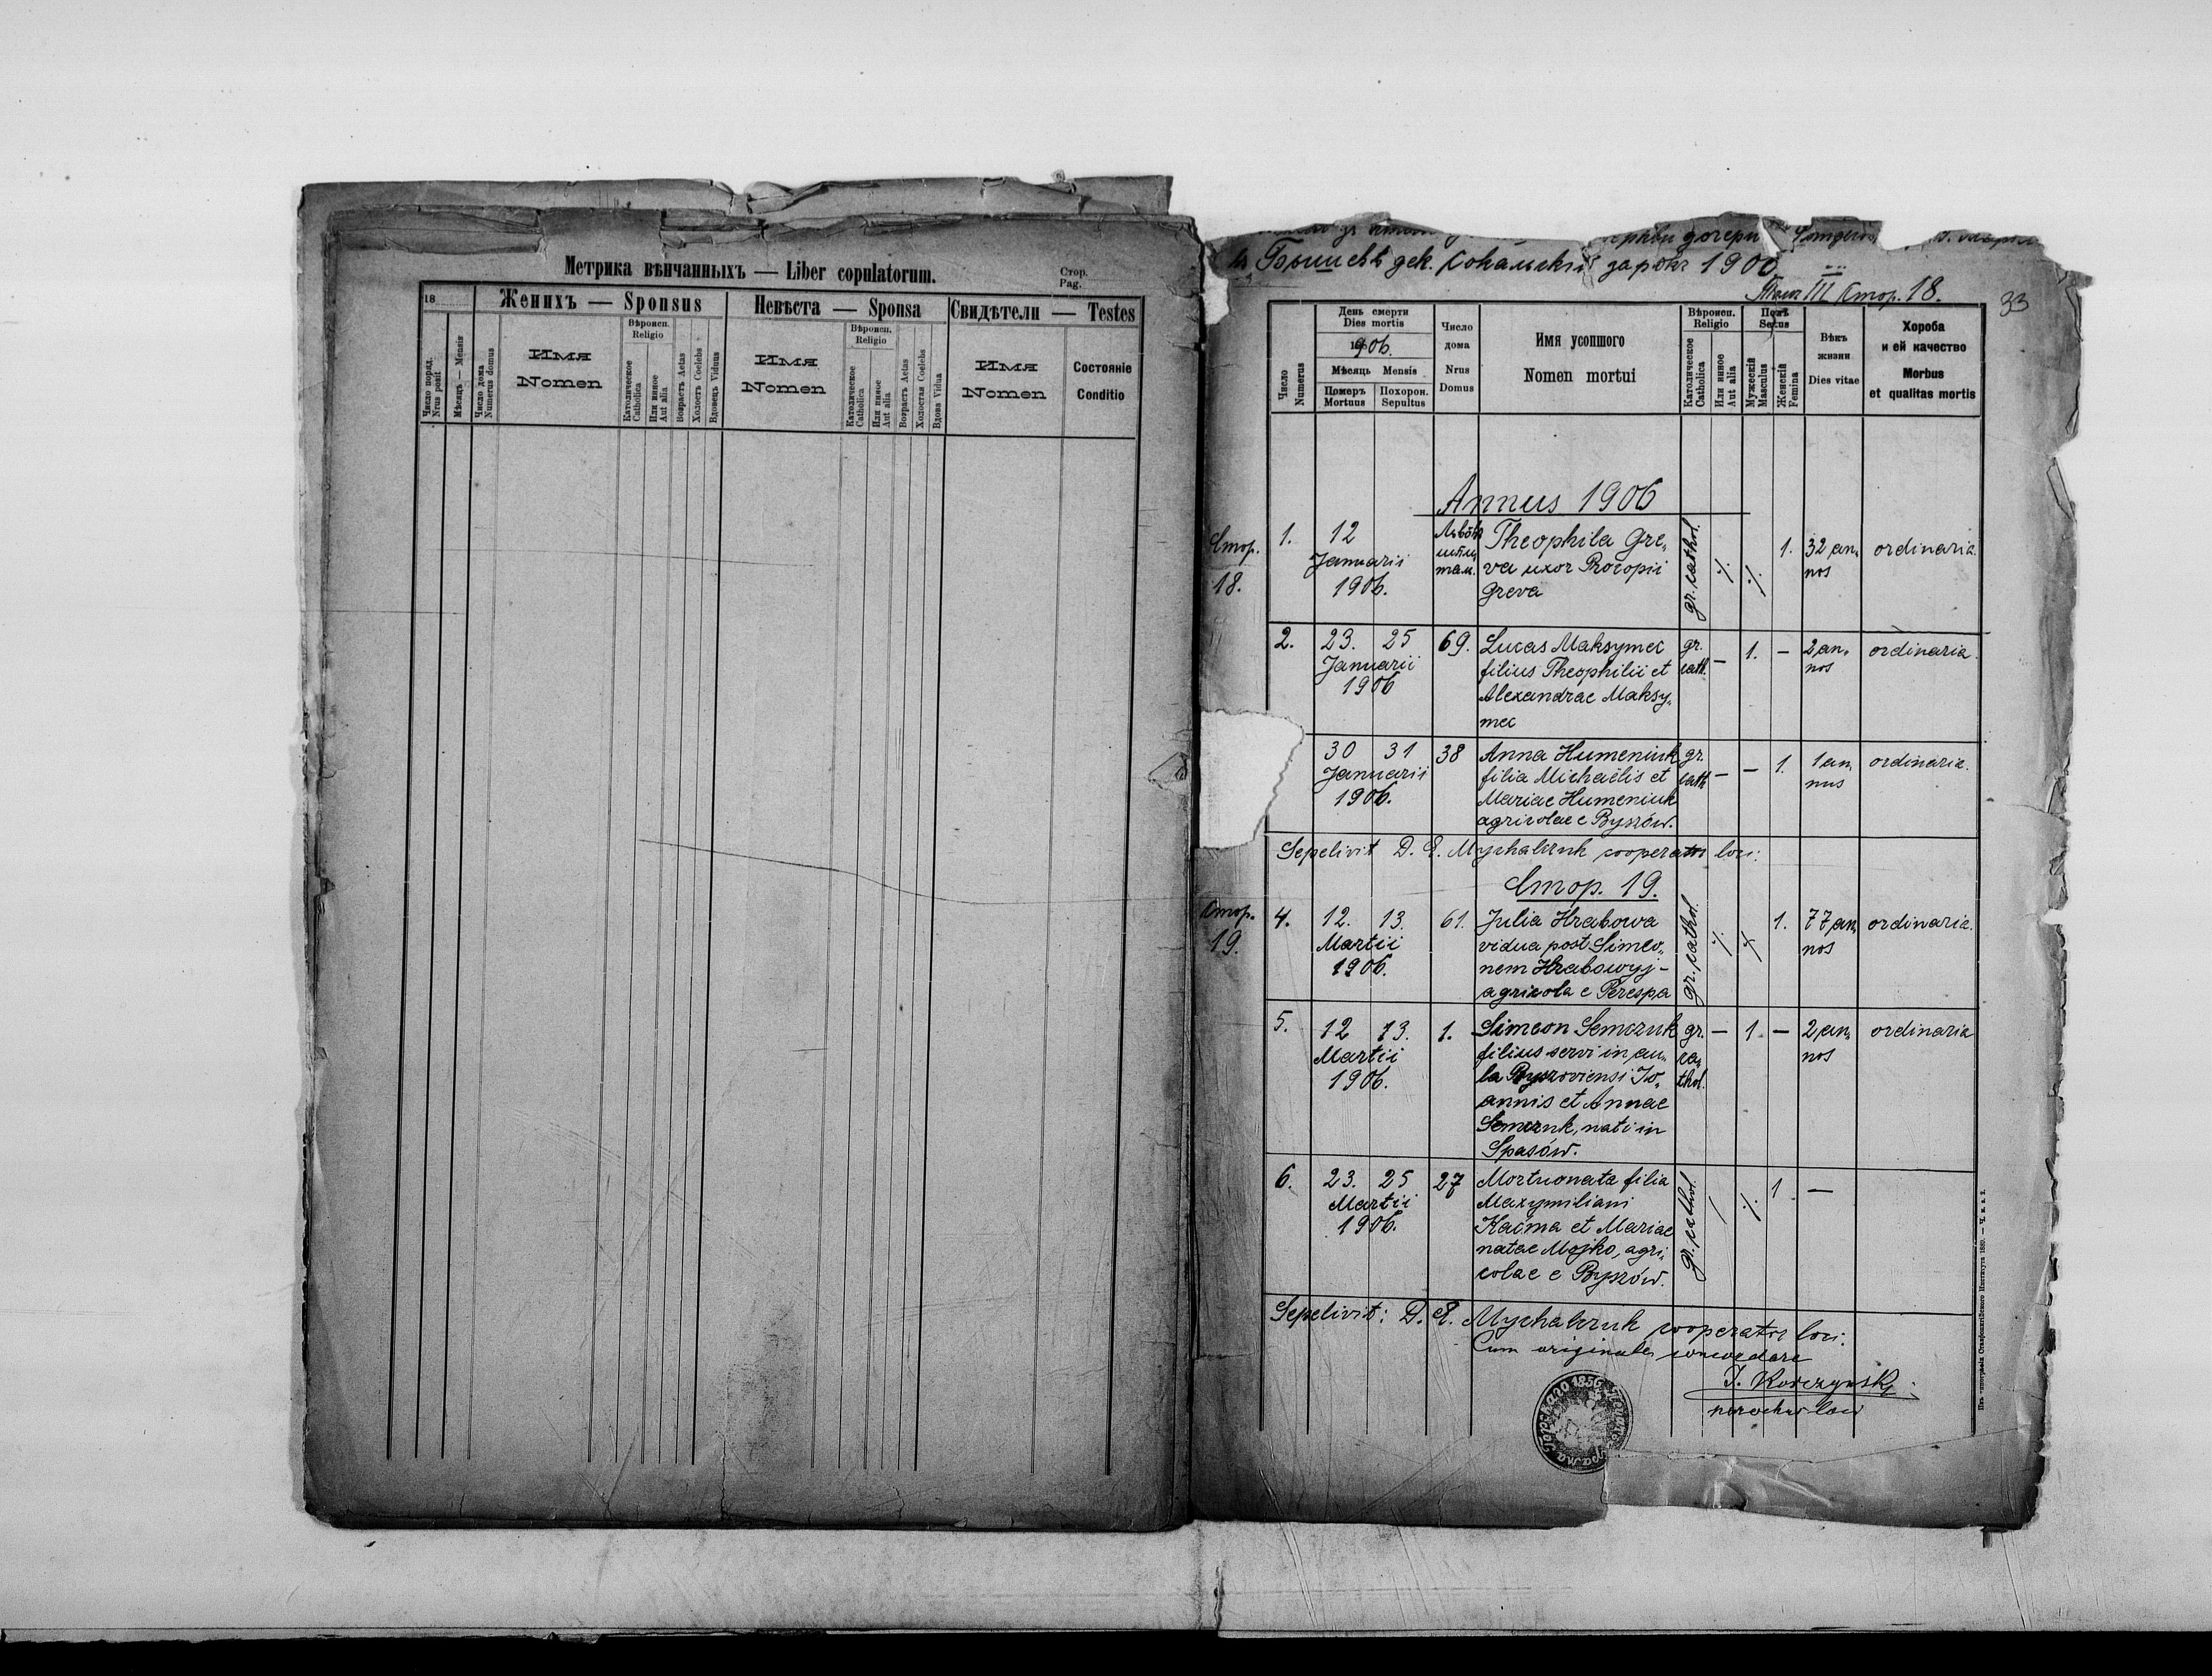 Метрика вѣнчанныхъ — Liber copulatorum.
Стор.
Pag.
18
Женихъ — Sponsus
Невѣста — Sponsa
Свидѣтели — Testes
Число поряд.
Nrus posit
Мѣсяцъ — Mensis
Число дома
Numerus domus
Имя
Nomen
Вѣроисп.
Religio
Католическое
Catholica
Или инное
Aut alia
Возрастъ Aetas
Холостъ Coelebs
Вдовецъ Viduus
Имя
Nomen
Вѣроисп.
Religio
Католическое
Catholica
Или инное
Aut alia
Возрастъ Aetas
Холостая Coelebs
Вдова Vidua
Имя
Nomen
Состояніе
Conditio
дочери
въ Бышевѣ дек. Сокальскій за рокъ 1906
Томъ III Стор. 18.
33
Число
Numerus
День смерти
Dies mortis
1906.
Мѣсяць Mensis
Померъ
Mortuus
Похорон.
Sepultus
Число
дома
Nrus
Domus
Имя усопшого
Nomen mortui
Вѣроисп.
Religio
Католическое
Catholica
Или инное
Aut alia
Полъ
Sexus
Мужескій
Masculus
Женскій
Femina
Вѣкъ
жизни
Dies vitae
Хороба
и ей качество
Morbus
et qualitas mortis
Annus 1906
Стор.
18.
1. 12 Theophila Gre„ gr. cathol. ⁒ ⁒ 1. 32 an„ ordinaria.
Januarii va uxor Procopii nos
1906. Greva
2. 23. 25 69. Lucas Maksymec gr. – 1. – 2 an„ ordinaria.
Januarii filius Theophilii et cath. nos
1906 Alexandrae Maksy„
mec
30 31 38 Anna Humeniuk gr. – – 1. 1 an„ ordinaria.
Januarii filia Michaëlis et cath nus
1906. Mariae Humeniuk
agricolae e Byszów.
Sepelivit D. E. Mychalczuk cooperator loci:
Стор. 19.
Стор.
19.
4. 12. 13. 61. Julia Hrabowa gr. cathol. ⁒ ⁒ 1. 77 an„ ordinaria.
Martii vidua post Simeo„ nos
1906. nem Hrabowyj –
agricola e Perespa
5. 12 13. 1. Simeon Semczuk gr. – 1. – 2 an„ ordinaria
Martii filius servi in au„ ca„ nos
1906. la Byszoviensi Jo„ thol.
annis et Annae
Semczuk, nati in
Spasów.
6. 23. 25 27 Mortuonata filia gr. cathol. / ⁒ 1. —
Martii Maxymiliani
1906. Kaćma et Mariae
natae Mojko, agri„
colae e Byszów.
Sepelivit: D. E. Mychalczuk cooperator loci:
Cum originale concordare
J. Korczynskij
parochus loci
1856
Изъ типографіи Ставропигійского Института 1889. — Ч. в. з.